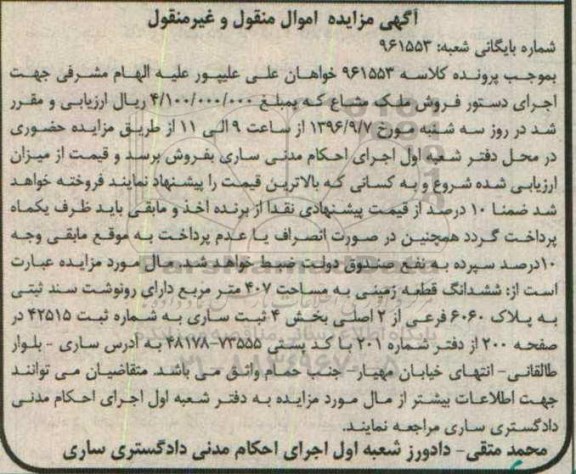 آگهی مزایده اموال منقول و غیرمنقول
شماره بایگانی شعبه: ۹۶۱۵۵۳
بموجب پرونده کلاسه ۹۶۱۵۵۳ خواهان علی علیپور علیه الهام مشرفی جهت
اجرای دستور فروش ملک مشاع که بمبلغ ۴/۱۰۰/۰۰۰/۰۰۰ ریال ارزیابی و مقرر
شد در روز سه شنبه مورخ ۱۳۹۶/۹/۷ از ساعت ۹ الی ۱۱ از طریق مزایده حضوری
در محل دفتر شعبه اول اجرای احکام مدنی ساری بفروش برسد و قیمت از میزان
ارزیابی شده شروع و به کسانی که بالاترین قیمت را پیشنهاد نمایند فروخته خواهد
شد ضمنا ۱۰ درصد از قیمت پیشنهادی نقدا از برنده اخذ و مابقی باید ظرف یکماه
پرداخت گردد همچنین در صورت انصراف یا عدم پرداخت به موقع مابقی وجه
۱۰درصد سپرده به نفع صندوق دولت ضبط خواهد شد. مال مورد مزایده عبارت
است از: ششدانگ قطعه زمینی به مساحت ۴۰۷ متر مربع دارای رونوشت سند ثبتی
به پلاک ۶۰۶۰ فرعی از ۲ اصلی بخش ۴ ثبت ساری به شماره ثبت ۴۲۵۱۵ در
صفحه ۲۰۰ از دفتر شماره ۲۰۱ با کد پستی ۷۳۵۵۵-۴۸۱۷۸ به آدرس ساری - بلوار
طالقانی- انتهای خیابان مهیار- جنب حمام واثق می باشد. متقاضیان می توانند
جهت اطلاعات بیشتر از مال مورد مزایده به دفتر شعبه اول اجرای احکام مدنی
دادگستری ساری مراجعه نمایند.
محمد متقی- دادورز شعبه اول اجرای احکام مدنی دادگستری ساری